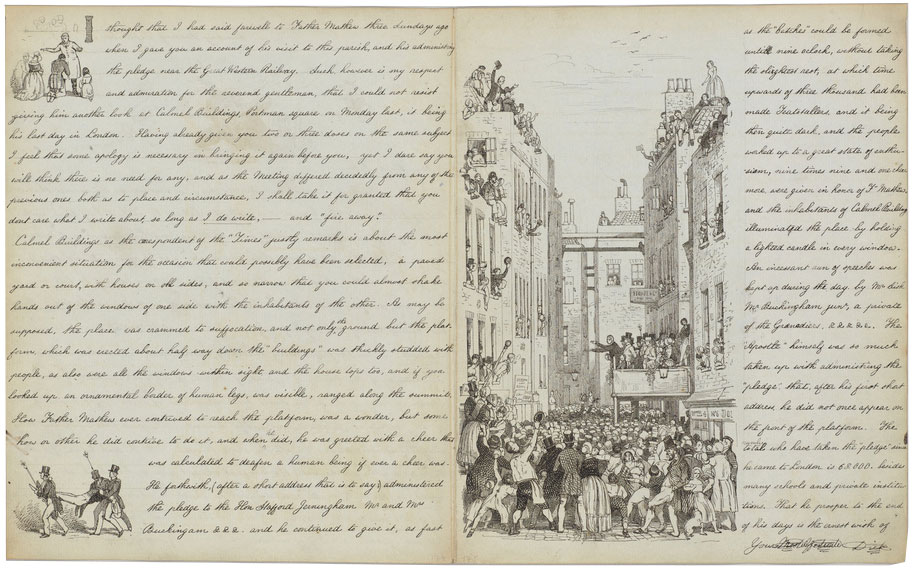 I thought that I had said farewell to Father Mathew three Sundays ago
when I gave you an account of his visit to this parish, and his administring
the pledge near the Great Western Railway. Such, however is my respect
and admiration for the reverend gentleman, that I could not resist
giving him another look at Calmel Buildings Portman square on Monday last, it being
his last day in London. Having already given you two or three doses on the same subject
I feel that some apology is necessary in bringing it again before you, yet I dare say you
will think there is no need for any, and as the Meeting differed decidedly from any of the
previous ones both as to place and circumstance, I shall take it for granted that you
dont care what I write about, so long as I do write, — and "fire away".
Calmel Buildings as the correspondent of the "Times" justly remarks is about the most
inconvenient situation for the occasion that could possibly have been selected, a paved
yard or court, with houses on all sides, and so narrow that you could almost shake
hands out of the windows of one side with the inhabitants of the other. As may be
supposed, the place was crammed to suffocation, and not only the ground but the plat-
form, which was erected about half way down the "buildings" was thickly studded with
people, as also were all the windows within sight and the house tops too, and if you
looked up an ornamental border of human legs, was visible, ranged along the summit.
How Father Mathew ever contrived to reach the platform, was a wonder, but some
how or other he did contrive to do it, and when he did, he was greeted with a cheer that
was calculated to deafen a human being if ever a cheer was.
He forthwith (after a short address that is to say) administered
the pledge to the Hon Stafford Jerningham Mr and Mrs
Buckingam &c &c &c. and he continued to give it, as fast
as the "batches" could be formed
until nine oclock, without taking
the slightest rest, at which time
upwards of three thousand had been
made Teatotallers, and it being
then quite dark, and the people
waked up to a great state of enthu-
siasm, nine times nine and one cheer
more were given in honor of Fr Mathew
and the inhabitants of Calmel Buildings
illuminated the place by holding
a lighted candle in every window.
An incessant run of speeches was
kept up during the day by Mr
Mr Buckingham junr, a private
of the Granadiers, &c &c &c. The
"Apostle" himself was so much
taken up with administring the
"pledge" that, after his first short
address he did not once appear on
the front of the platform. The
total who have taken the "pledge" since
he came to London is 68.000. besides
many schools and private institu-
tions. That he prosper to the end
of his days is the arnest wish of
Yours Dick.